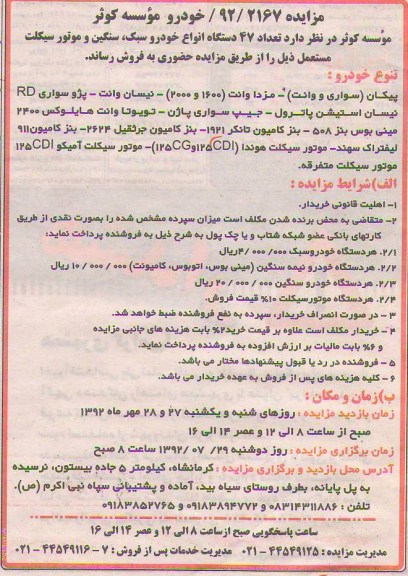 مزایده ۹۲/۲۱۶۷/ خودرو مؤسسه کوثر
مؤسسه کوثر در نظر دارد تعداد ۴۷ دستگاه انواع خودرو سبک، سنگین و موتور سیکلت
مستعمل ذیل را از طریق مزایده حضوری به فروش رساند.
تنوع خودرو :
پیکان (سواری و وانت) - مزدا وانت (۱۶۰۰ و ۲۰۰۰) - نیسان وانت - پژو سواری RD
نیسان استیشن پاترول - جیپ سواری پاژن - تویوتا وانت هایلوکس ۲۴۰۰
مینی بوس بنز ۵۰۸ - بنز کامیون تانکر ۱۹۲۱- بنز کامیون جرثقیل ۲۶۲۴- بنز کامیون ۹۱۱
لیفتراک سهند- موتور سیکلت هوندا (۱۲۵CDIو۱۲۵CG)- موتور سیکلت آمیکو ۱۲۵CDI
موتور سیکلت متفرقه.
الف)شرایط مزایده :
۱- اهلیت قانونی خریدار.
۲- متقاضی به محض برنده شدن مکلف است میزان سپرده مشخص شده را بصورت نقدی از طریق
کارتهای بانکی عضو شبکه شتاب و یا چک پول به شرح ذیل به فروشنده پرداخت نماید:
۲/۱. هردستگاه خودروسبک ۰۰۰/ ۰۰۰/ ۴ریال
۲/۲. هردستگاه خودرو نیمه سنگین (مینی بوس، اتوبوس، کامیونت) ۰۰۰/ ۰۰۰/ ۱۰ ریال
۲/۳. هردستگاه خودرو سنگین ۰۰۰/ ۰۰۰/ ۲۰ ریال
۲/۴. هردستگاه موتورسیکلت ۱۰% قیمت فروش.
۳ - در صورت انصراف خریدار، سپرده به نفع فروشنده ضبط خواهد شد.
۴ - خریدار مکلف است علاوه بر قیمت خرید۲% بابت هزینه های جانبی مزایده
و ۶% بابت مالیات بر ارزش افزوده به فروشنده پرداخت نماید.
۵ - فروشنده در رد یا قبول پیشنهادها مختار می باشد.
۶ - کلیه هزینه های پس از فروش به عهده خریدار می باشد.
ب)زمان و مکان :
زمان بازدید مزایده : روزهای شنبه و یکشنبه ۲۷ و ۲۸ مهر ماه ۱۳۹۲
صبح از ساعت ۸ الی ۱۲ و عصر ۱۴ الی ۱۶
زمان برگزاری مزایده : روز دوشنبه ۲۹/ ۰۷/ ۱۳۹۲ ساعت ۸ صبح
آدرس محل بازدید و برگزاری مزایده : کرمانشاه، کیلومتر ۵ جاده بیستون، نرسیده
به پل پایانه، بطرف روستای سیاه بید، آماد و پشتیبانی سپاه نبی اکرم (ص).
تلفن : ۰۸۳۱۴۳۱۱۸۸۶ و ۰۹۱۸۳۸۹۴۷۷۲ و ۰۹۱۸۳۸۵۲۷۶۵
ساعت پاسخگویی صبح ازساعت ۸ الی ۱۲ و عصر ۱۴ الی ۱۶
مدیریت مزایده : ۴۴۵۴۹۱۲۵ - ۰۲۱ مدیریت خدمات پس از فروش : ۷ - ۴۴۵۴۹۱۱۶ - ۰۲۱